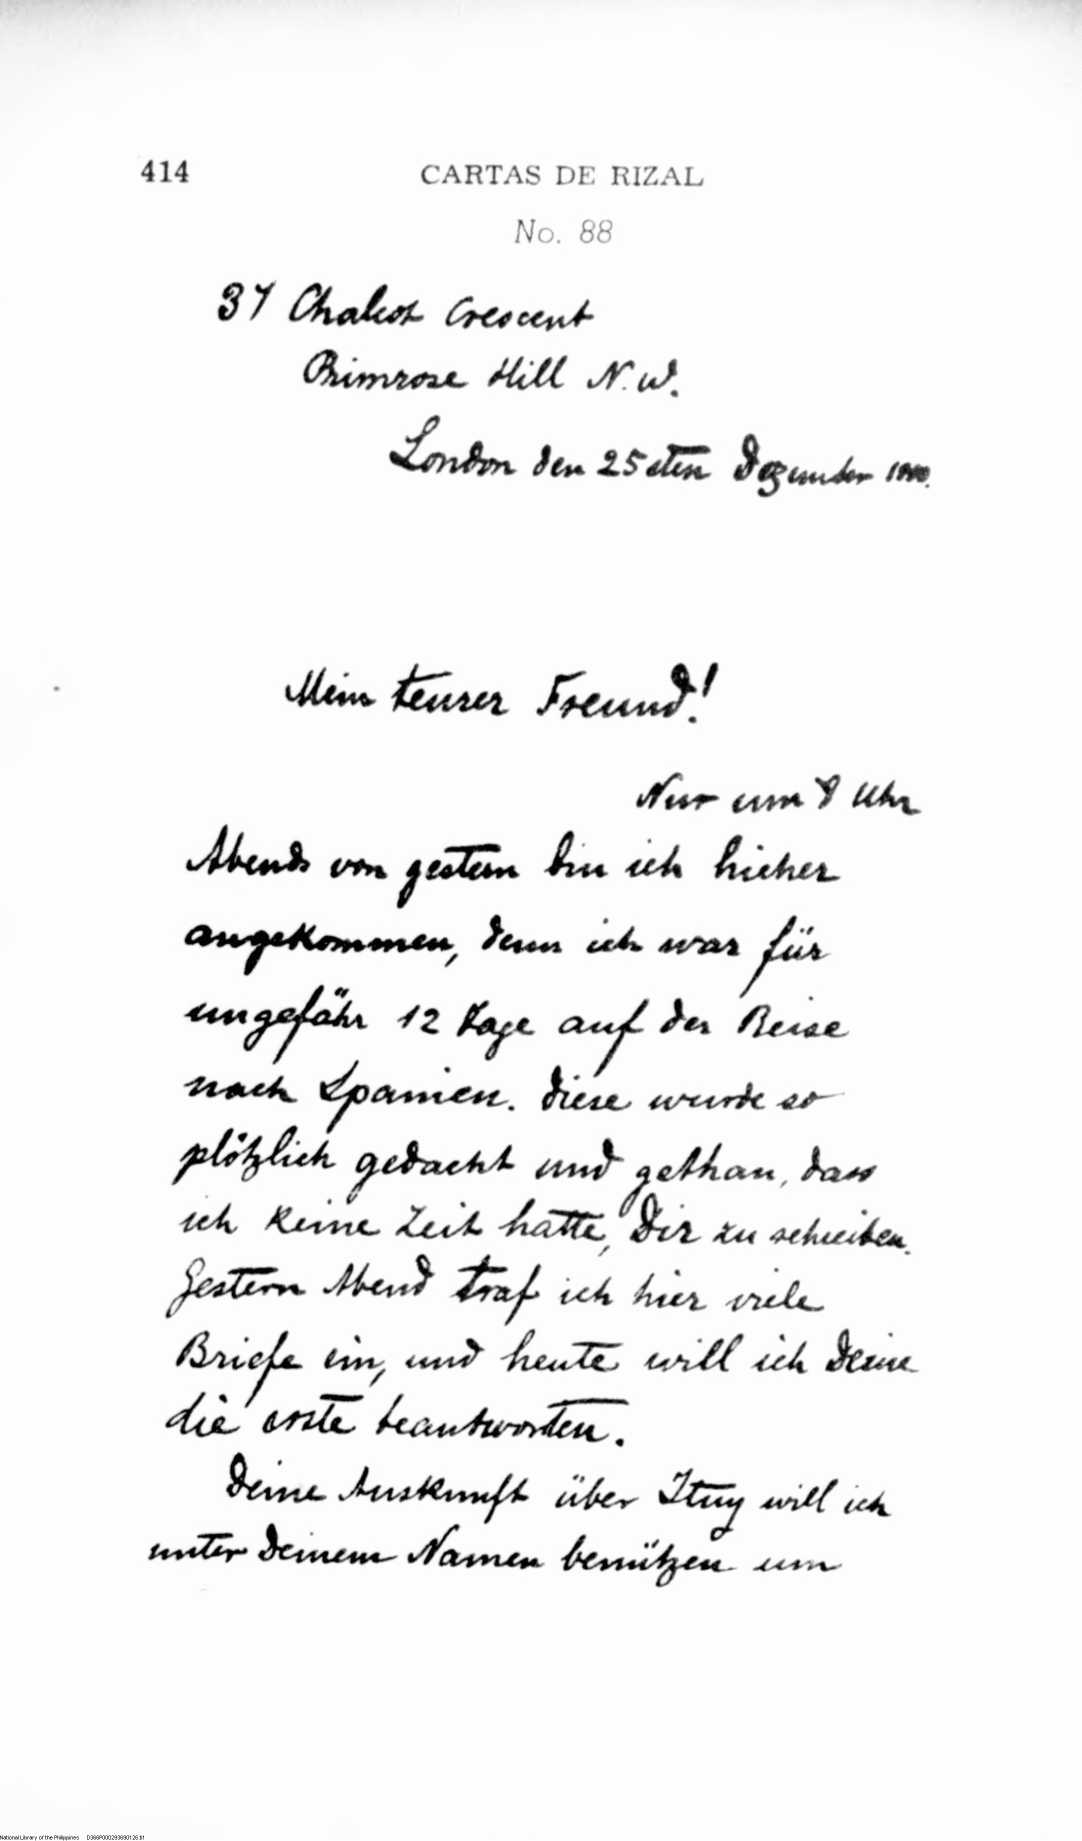 414
CARTAS DE RIZAL
No. 88
37 Chalcot Crescent
Primrose Hill N. W.
London den 25sten Dezember
Mein teurer Freund!
Nur um 8 Uhr
Abends von gestern bin ich hieher
angekommen, denn ich war für
ungefähr 12 Tage auf der Reise
nach Spanien. Diese wurde so
plötzlich gedacht und gethan, dass
ich keine Zeit hatte, Dir zu schreiben.
Gestern Abend traf ich hier viele
Briefe ein, und heute will ich Deine
die erste beantworten.
Deine Auskunft über Ituy will ich
unter Deinem Namen benützen um
National Library of the Philippines